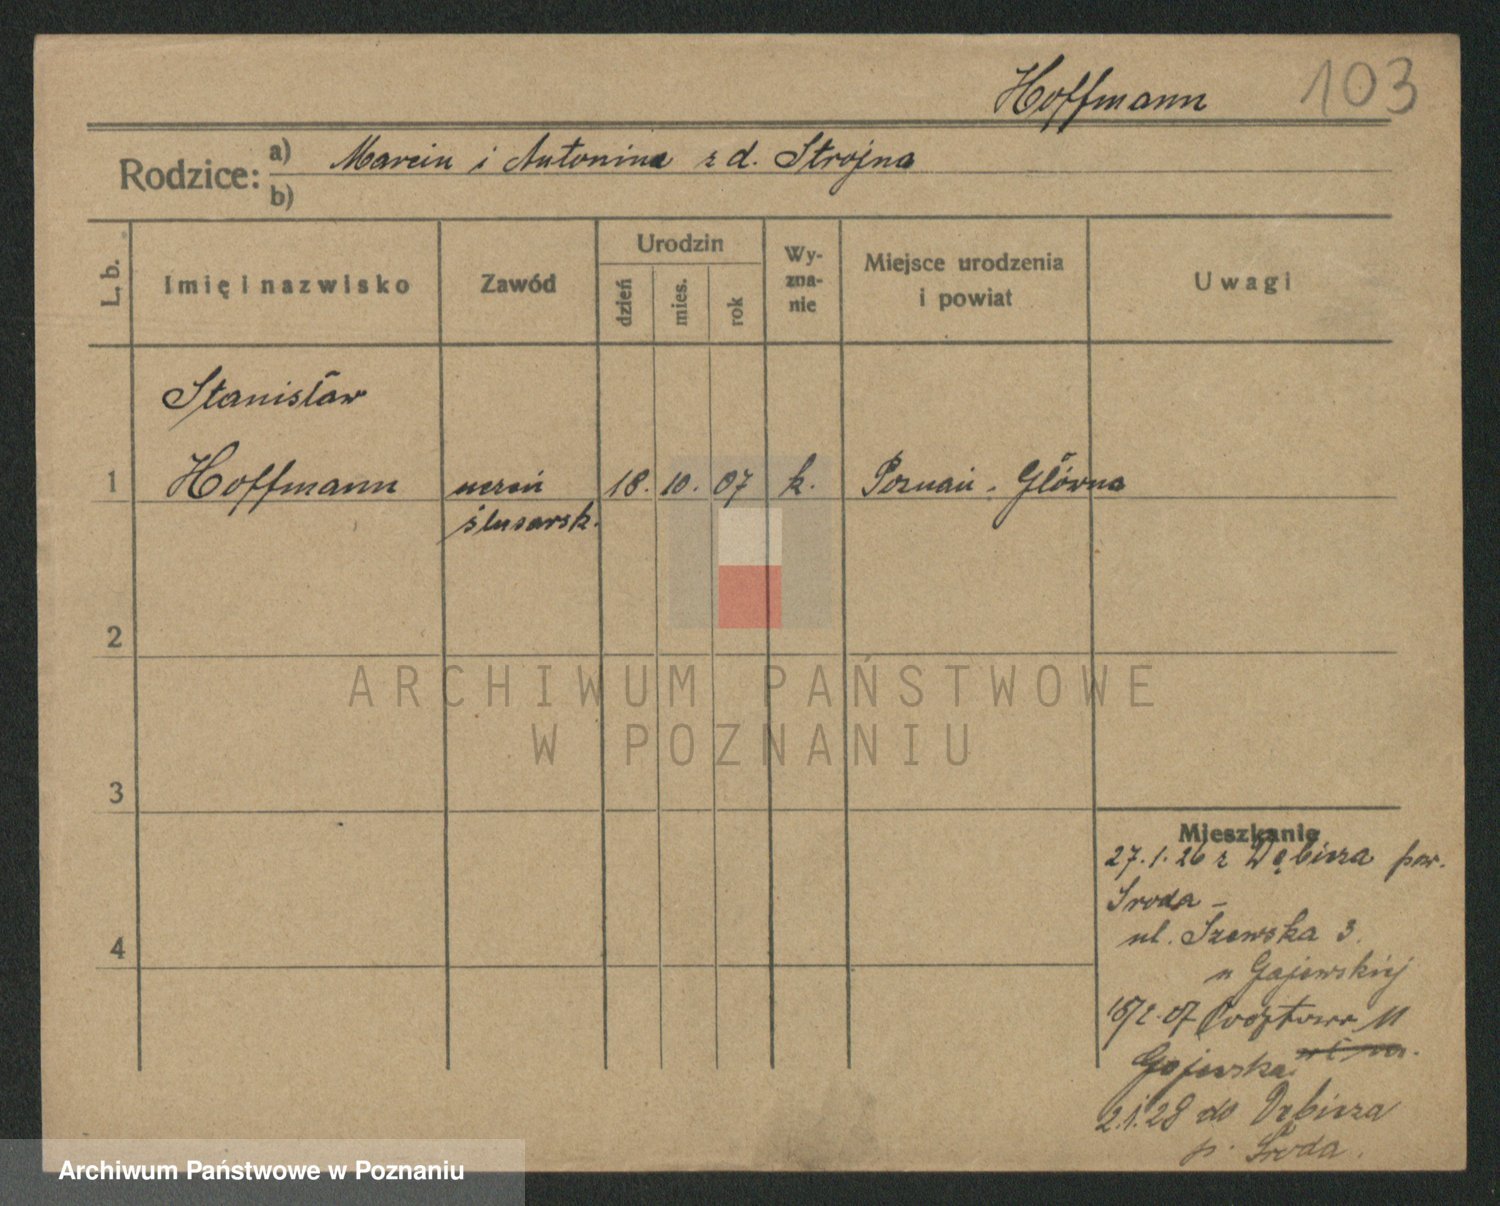 Hoffmann 103
Rodzice: a) Marcin i Antonina z d. Strojna
b)
L. b. Imię i nazwisko Zawód Urodzin dzień mies. rok Wy-zna-nie Miejsce urodzenia i powiat Uwagi
Stanisław
1 Hoffmann uczeń 18. 10. 07 k. Poznań - Główna
ślusarsk.
2
ARCHIWUM PAŃSTWOWE
W POZNANIU
3
Mieszkanie
27.1.26 z Dębicza pow.
Środa -
ul. Szewska 3.
4
u Gajewskiej
Pocztowa 11
Gajewska
2.1.28 do Dębicza
p. Środa.
Archiwum Państwowe w Poznaniu